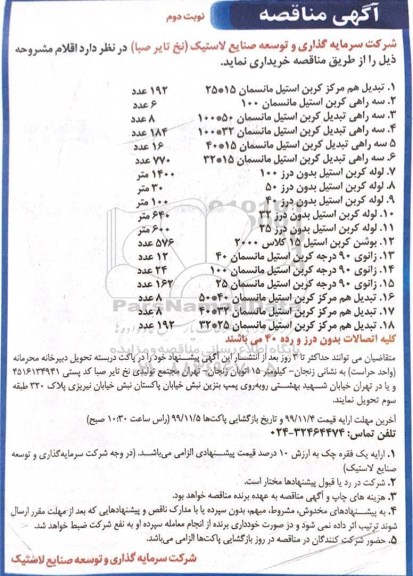 آگهی مناقصه
نوبت دوم
شرکت سرمایه گذاری و توسعه صنایع لاستیک (نخ تایر صبا) در نظر دارد اقلام مشروحه
ذیل را از طریق مناقصه خریداری نماید.
۱. تبدیل هم مرکز کربن استیل مانسمان ۱۵*۲۵ ۱۹۲ عدد
۲. سه راهی کربن استیل مانسمان ۱۰۰ ۶ عدد
۳. سه راهی تبدیل کربن استیل مانسمان ۵۰*۱۰۰ ۸ عدد
۴. سه راهی تبدیل کربن استیل مانسمان ۳۲*۱۰۰ ۱۸۴ عدد
۵ سه راهی تبدیل کربن استیل مانسمان ۱۵*۴۰ ۱۶ عدد
۶. سه راهی تبدیل کربن استیل مانسمان ۱۵*۳۲ ۷۷۰ عدد
۷. لوله کربن استیل بدون درز ۱۰۰ ۱۴۰۰ متر
۸. لوله کربن استیل بدون درز ۵۰ ۳۰ متر
۹. لوله کربن استیل بدون درز ۴۰ ۱۰۰ متر
۱۰. لوله کربن استیل بدون درز ۳۲ ۶۴۰ متر
۱۱. لوله کربن استیل بدون درز ۲۵ ۶۰۰ متر
۱۲. بوشن کربن استیل ۱۵ کلاس ۳۰۰۰ ۵۷۶ عدد
۱۳. زانوی ۹۰ درجه کربن استیل مانسمان ۴۰ ۱۲ عدد
۱۴. زانوی ۹۰ درجه کربن استیل مانسمان ۱۰۰ ۲۴ عدد
۱۵. زانوی ۹۰ درجه کربن استیل مانسمان ۲۵ ۱۶۲ عدد
۱۶. تبدیل هم مرکز کربن استیل مانسمان ۴۰*۵۰ ۸ عدد
۱۷. تبدیل هم مرکز کربن استیل مانسمان ۳۲*۴۰ ۸ عدد
۱۸. تبدیل هم مرکز کربن استیل مانسمان ۲۵*۳۲ ۱۹۲ عدد
کلیه اتصالات بدون درز و رده ۴۰ می باشند
متقاضیان می توانند حداکثر تا ۳ روز بعد از انتشار این آگهی پیشنهاد خود را در پاکت دربسته تحویل دبیرخانه محرمانه
(واحد حراست) به نشانی زنجان- کیلومتر ۱۵ اتوبان زنجان- تهران مجتمع تولیدی نخ تایر صبا کد پستی ۴۵۱۶۱۳۴۹۴۱
و یا در تهران خیابان شهید بهشتی روبه‌روی پمپ بنزین نبش خیابان پاکستان نبش خیابان نیریزی پلاک ۳۲۰ طبقه
سوم تحویل نمایند.
آخرین مهلت ارایه قیمت ۹۹/۱۱/۴ و تاریخ بازگشایی پاکت‌ها ۹۹/۱۱/۵ (راس ساعت ۱۰:۳۰ صبح)
تلفن تماس: ۳۲۴۶۴۴۷۴-۰۲۴
۱. ارایه یک فقره چک به ارزش ۱۰ درصد قیمت پیشنهادی الزامی می‌باشد. (در وجه شرکت سرمایه‌گذاری و توسعه
صنایع لاستیک)
۲. شرکت در رد یا قبول پیشنهادها مختار است.
۳. هزینه های چاپ و آگهی مناقصه به عهده برنده مناقصه خواهد بود.
۴. به پیشنهادهای مخدوش، مشروط، مبهم، بدون سپرده یا با مدارک ناقص و پیشنهادهایی که بعد از مهلت مقرر ارسال
شوند ترتیب اثر داده نمی شود و در صورت خودداری برنده از انجام معامله سپرده او به نفع شرکت ضبط خواهد شد.
۵. حضور شرکت کنندگان در مناقصه در روز بازگشایی پاکت‌ها الزامی می‌باشد.
شرکت سرمایه گذاری و توسعه صنایع لاستیک